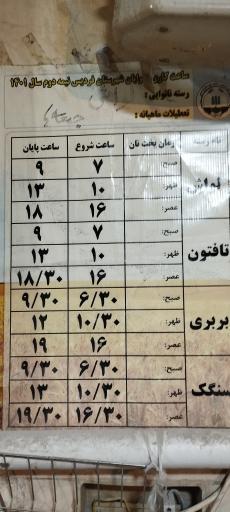 ساعت کاری نانوایان شهرستان فردیس نیمه دوم سال ۱۴۰۱
رسته نانوایی :
تعطیلات ماهیانه : جمعه ها
نام رسته زمان پخت نان ساعت شروع ساعت پایان
لواش
صبح: ۷ ۹
ظهر: ۱۰ ۱۳
عصر: ۱۶ ۱۸
تافتون
صبح: ۷ ۹
ظهر: ۱۰ ۱۳
عصر: ۱۶ ۱۸/۳۰
بربری
صبح: ۶/۳۰ ۹/۳۰
ظهر: ۱۰/۳۰ ۱۲
عصر: ۱۶ ۱۹
سنگک
صبح: ۶/۳۰ ۹/۳۰
ظهر: ۱۰/۳۰ ۱۳
عصر: ۱۶/۳۰ ۱۹/۳۰